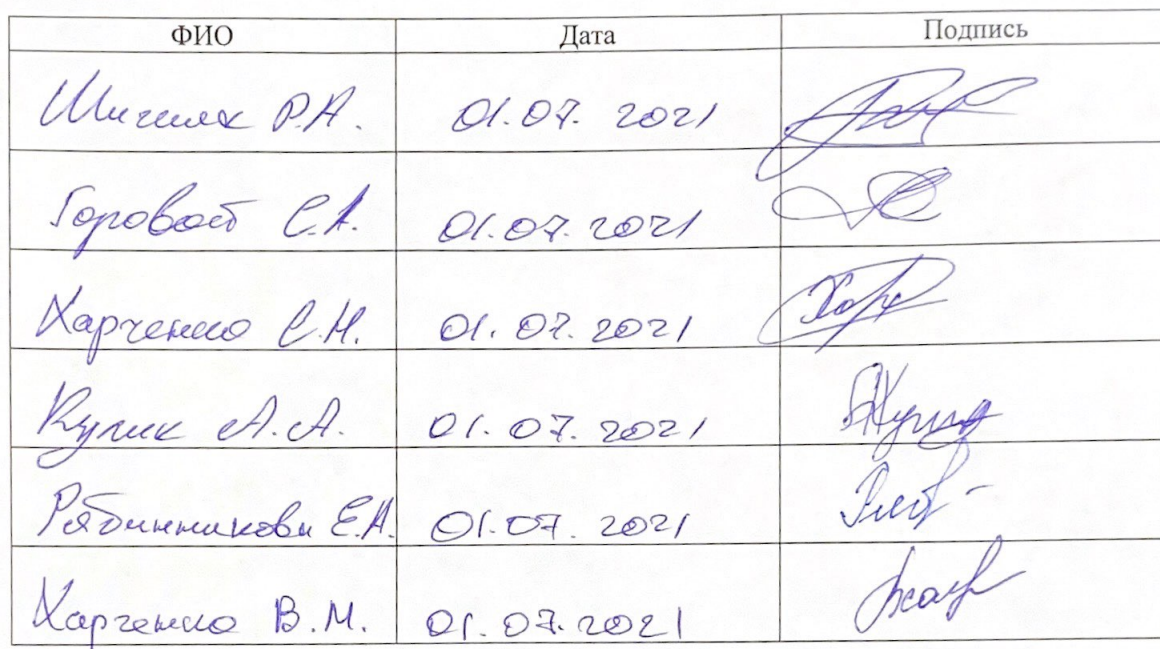 ФИО Дата Подпись
Р.А. 01.07.2021
Горовой С.А. 01.07.2021
Харченко С.Н. 01.07.2021
Кулик А.А. 01.07.2021
Рябинникова Е.А. 01.07.2021
Харченко В.М. 01.07.2021